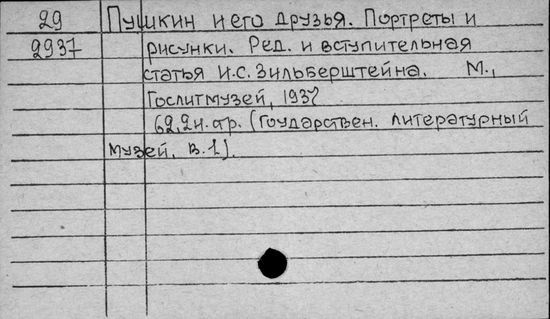 29 Пушкин и его друзья. Портреты и
2937 рисунки. Ред. и вступительная
статья И.С. Зильберштейна. М.,
Гослитмузей, 1937
62,2н.стр. (Гоударствен. литературный
музей. В.1).